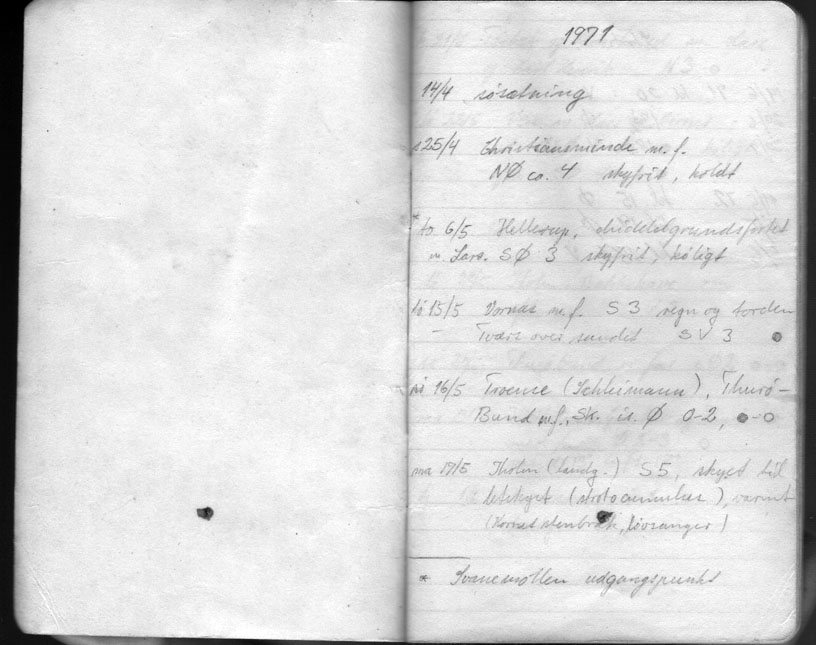 1971
14/4 søsætning
s 25/4 Christiansminde m.f.
NØ ca. 4 skyfrit, koldt
* to. 6/5 Hellerup, Middelgrundsfortet
m. Lars. SØ 3 skyfrit, køligt
lø 15/5 m.f. S 3 regn og torden
Tværs over sundet SV 3 ●
sø 16/5 Troense (Schliemann), Thurø-
Bund m.f., Sk. is. Ø 0-2, ●-○
ma 17/5 Tholm (landg.) S 5, skyet til
letskyet (stratocumulus), varmt
stenbræk, løvsanger)
* Svanemøllen udgangspunkt